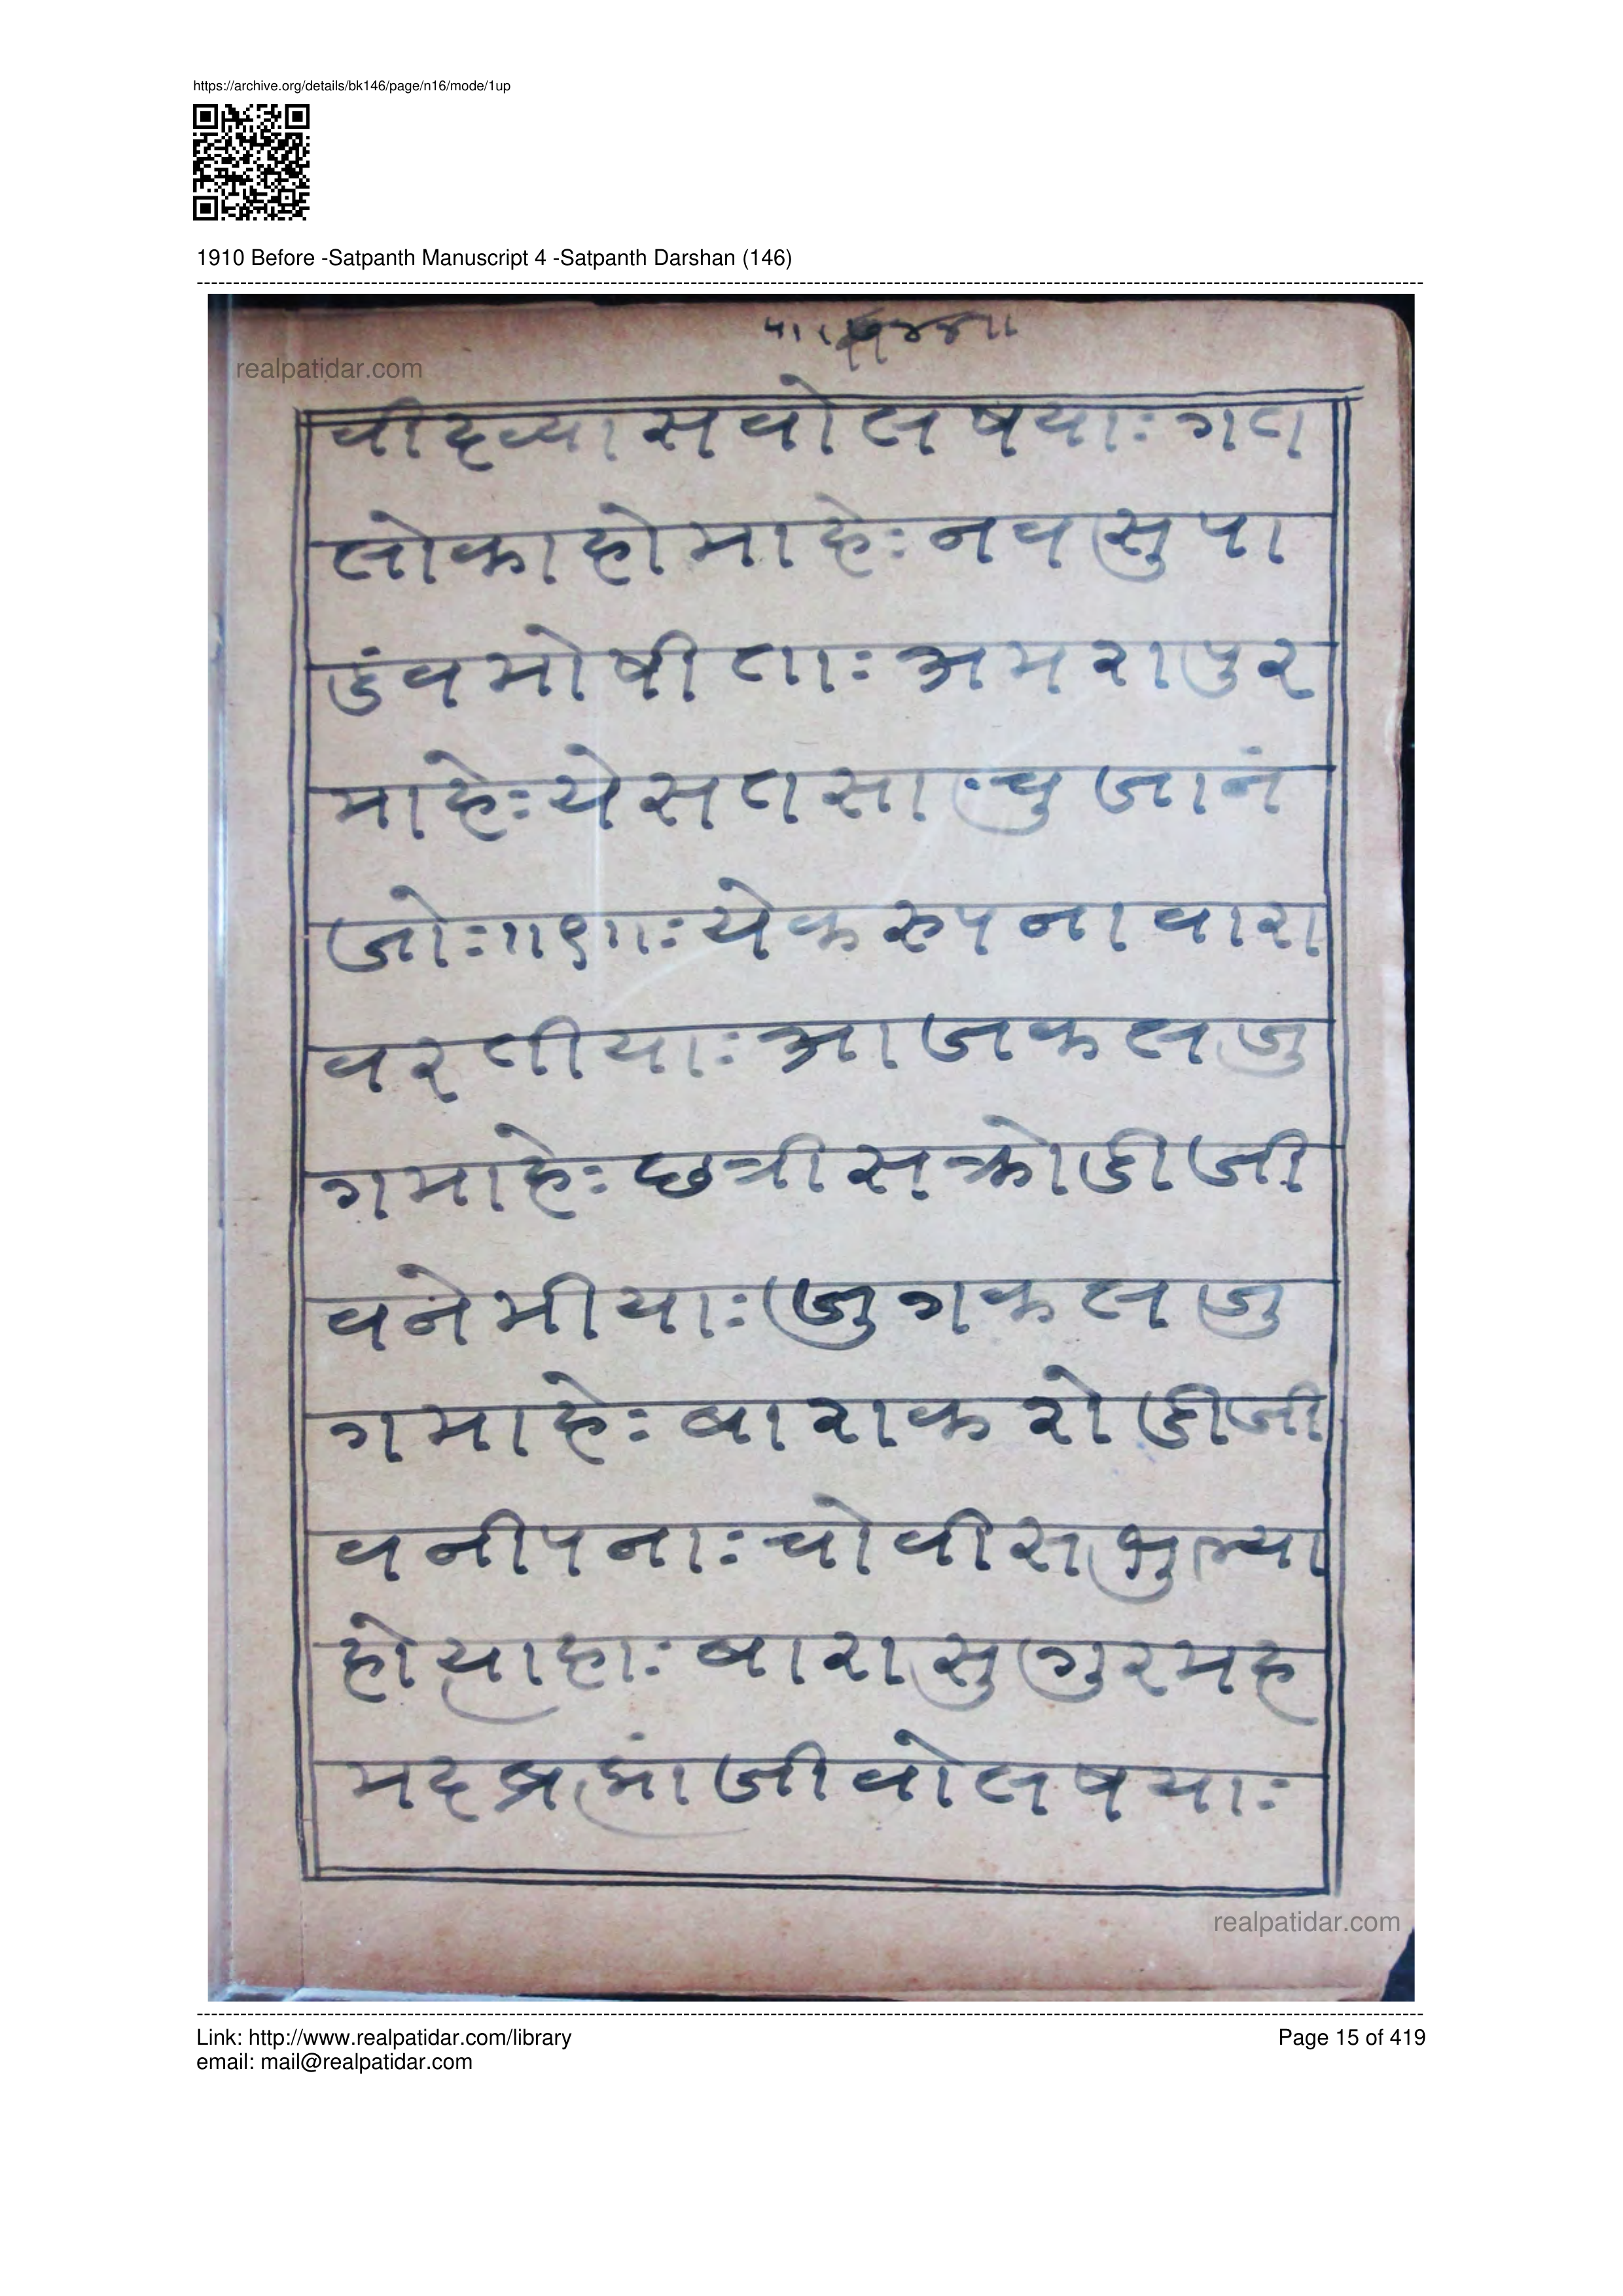 https://archive.org/details/bk146/page/n16/mode/1up
1910 Before -Satpanth Manuscript 4 -Satpanth Darshan (146)
realpatidar.com
वीदव्यासवोलषयाः गत
लोकाहोमाहेः नवसुपा
डंवमोषीताः अमरापुर
माहेः येसतसाचुजानं
जोः॥१॥ः येकरुपनावारा
वरतीयाः आजकलजु
गमाहेः छत्रीसक्रोडीजी
वनेमीयाः जुगकलजु
गमाहेः बाराकरोडीजी
वनीपनाः चोवीसभुल्या
होयाहाः बारासुगुरमह
मदब्रह्मांजीवोलषयाः
realpatidar.com
Link: http://www.realpatidar.com/library
Page 15 of 419
email: mail@realpatidar.com